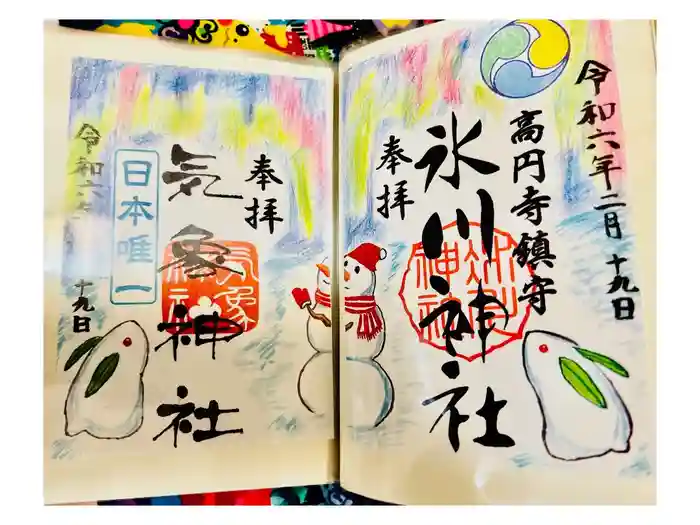 令和六年二月十九日
高円寺鎮守
氷川神社
奉拝
奉拝
気象神社
日本唯一
令和六年
十九日
気象神社